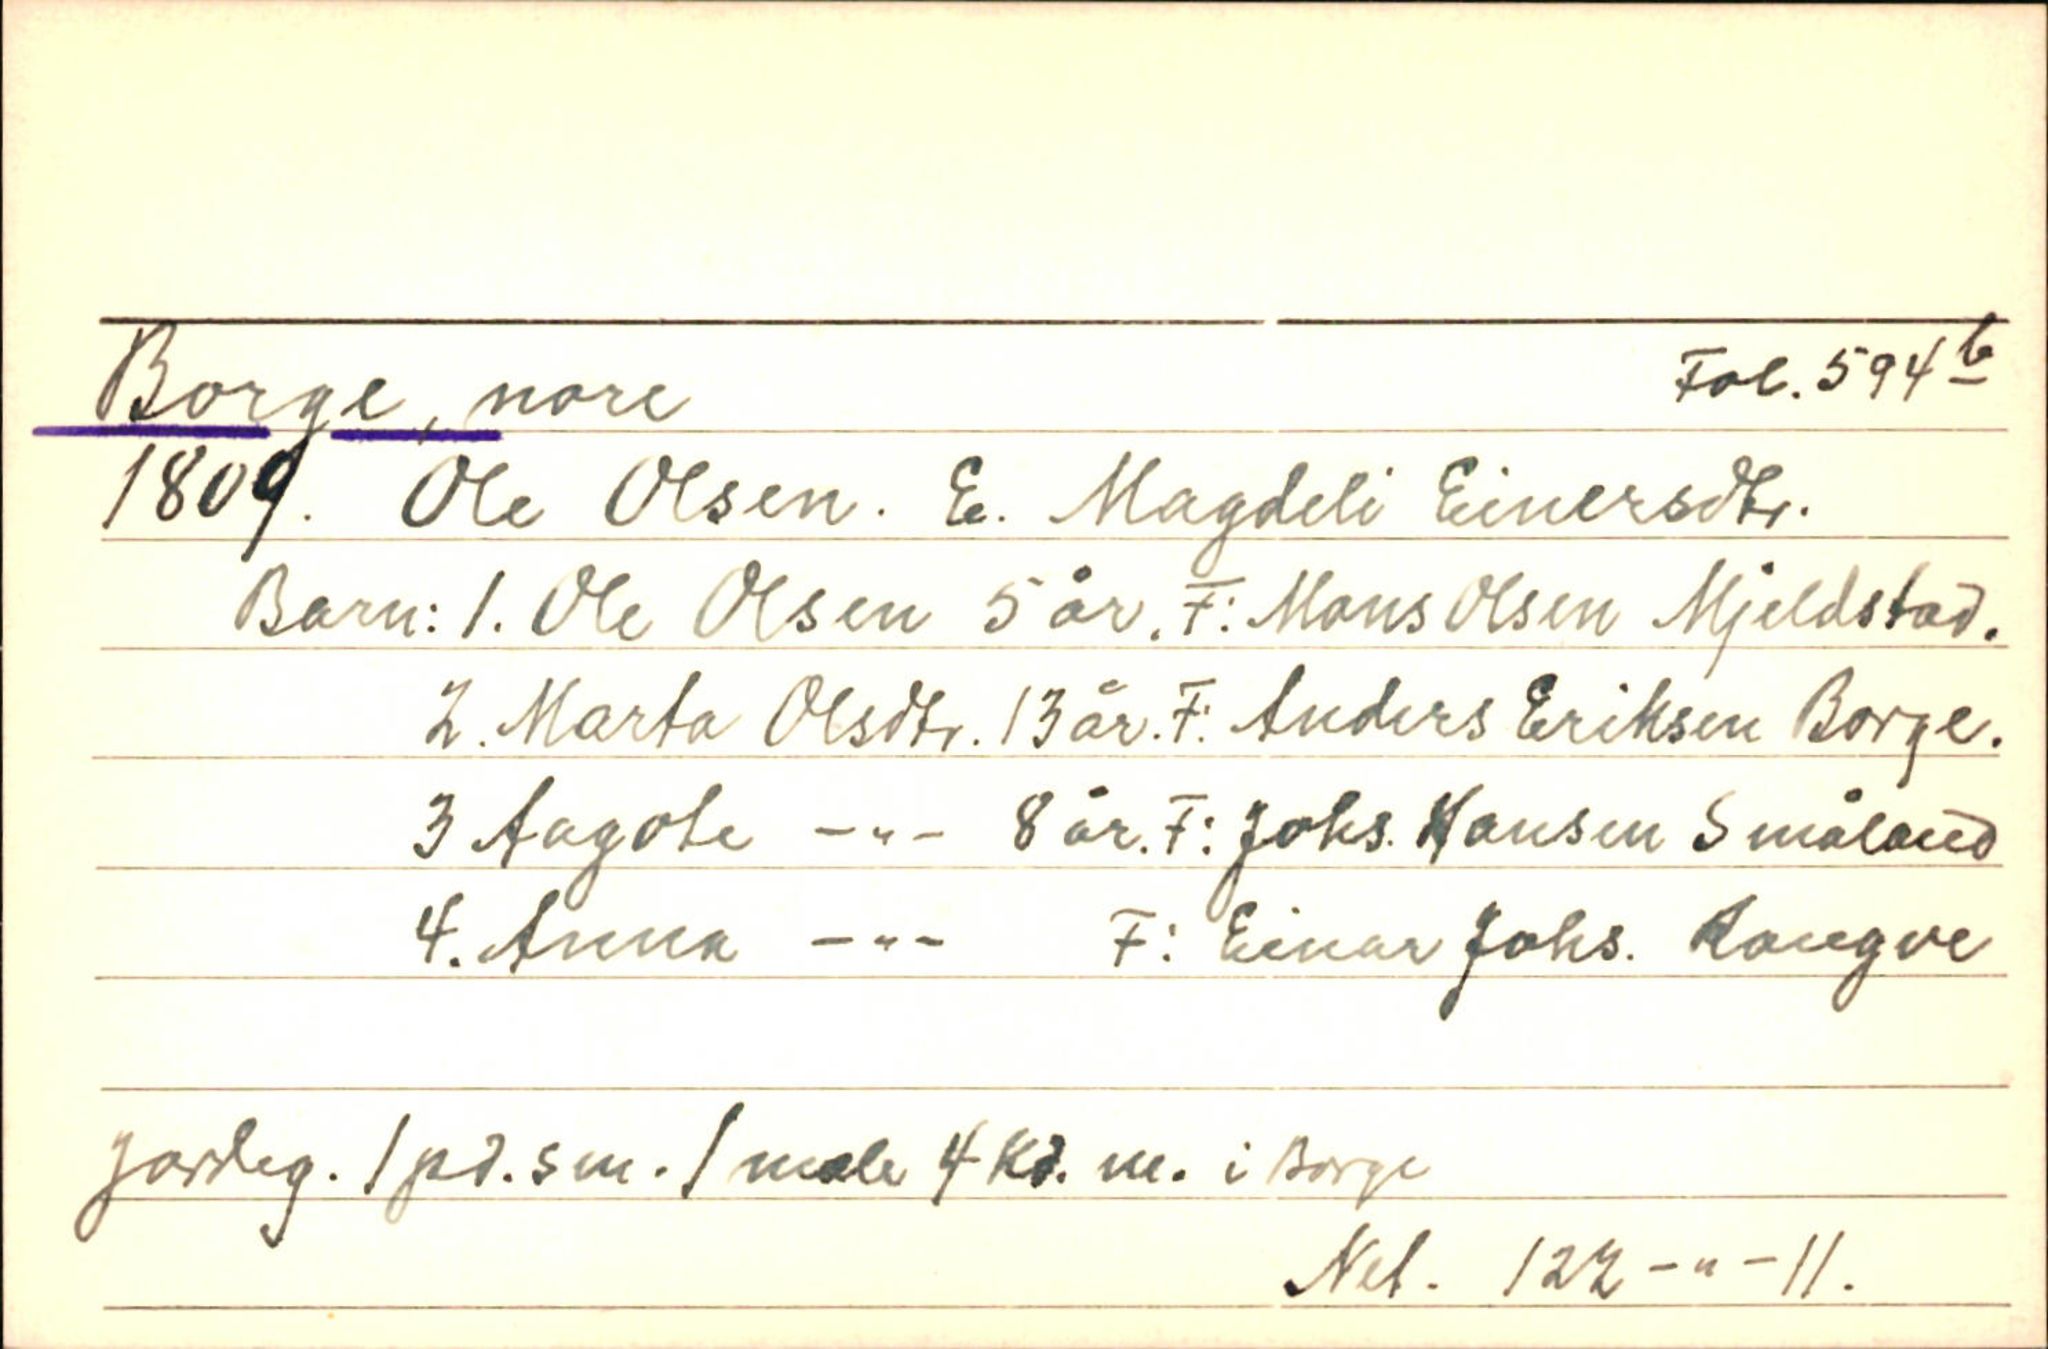 Borge, nore Fol. 594 b
1809. Ole Olsen. E. Magdeli Einersdtr.
Barn: 1. Ole Olsen 5 år. F: Mons Olsen Mjeldstad.
2. Marta Olsdtr. 13 år. F: Anders Eriksen Borge.
3 Aagote -"- 8 år. F: Johs. Hansen Småland
4. Anna -"- F: Einar Johs. Raugve
Jordeg. 1 pd. sm. 1 mele 4 Kd. m. i Borge
Net. 122 -"- 11.